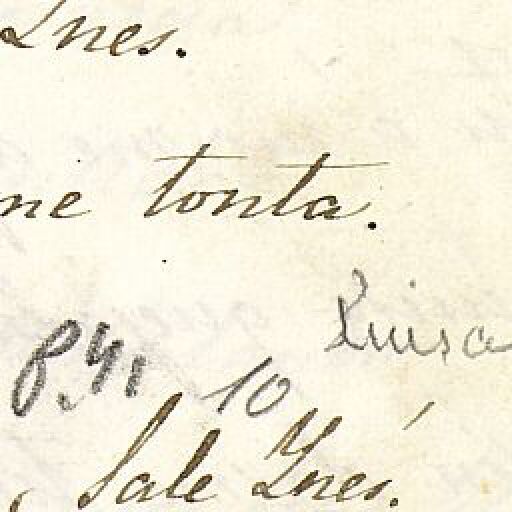 Ynes.
ne tonta.
Luisa
10
Sale Ynés.